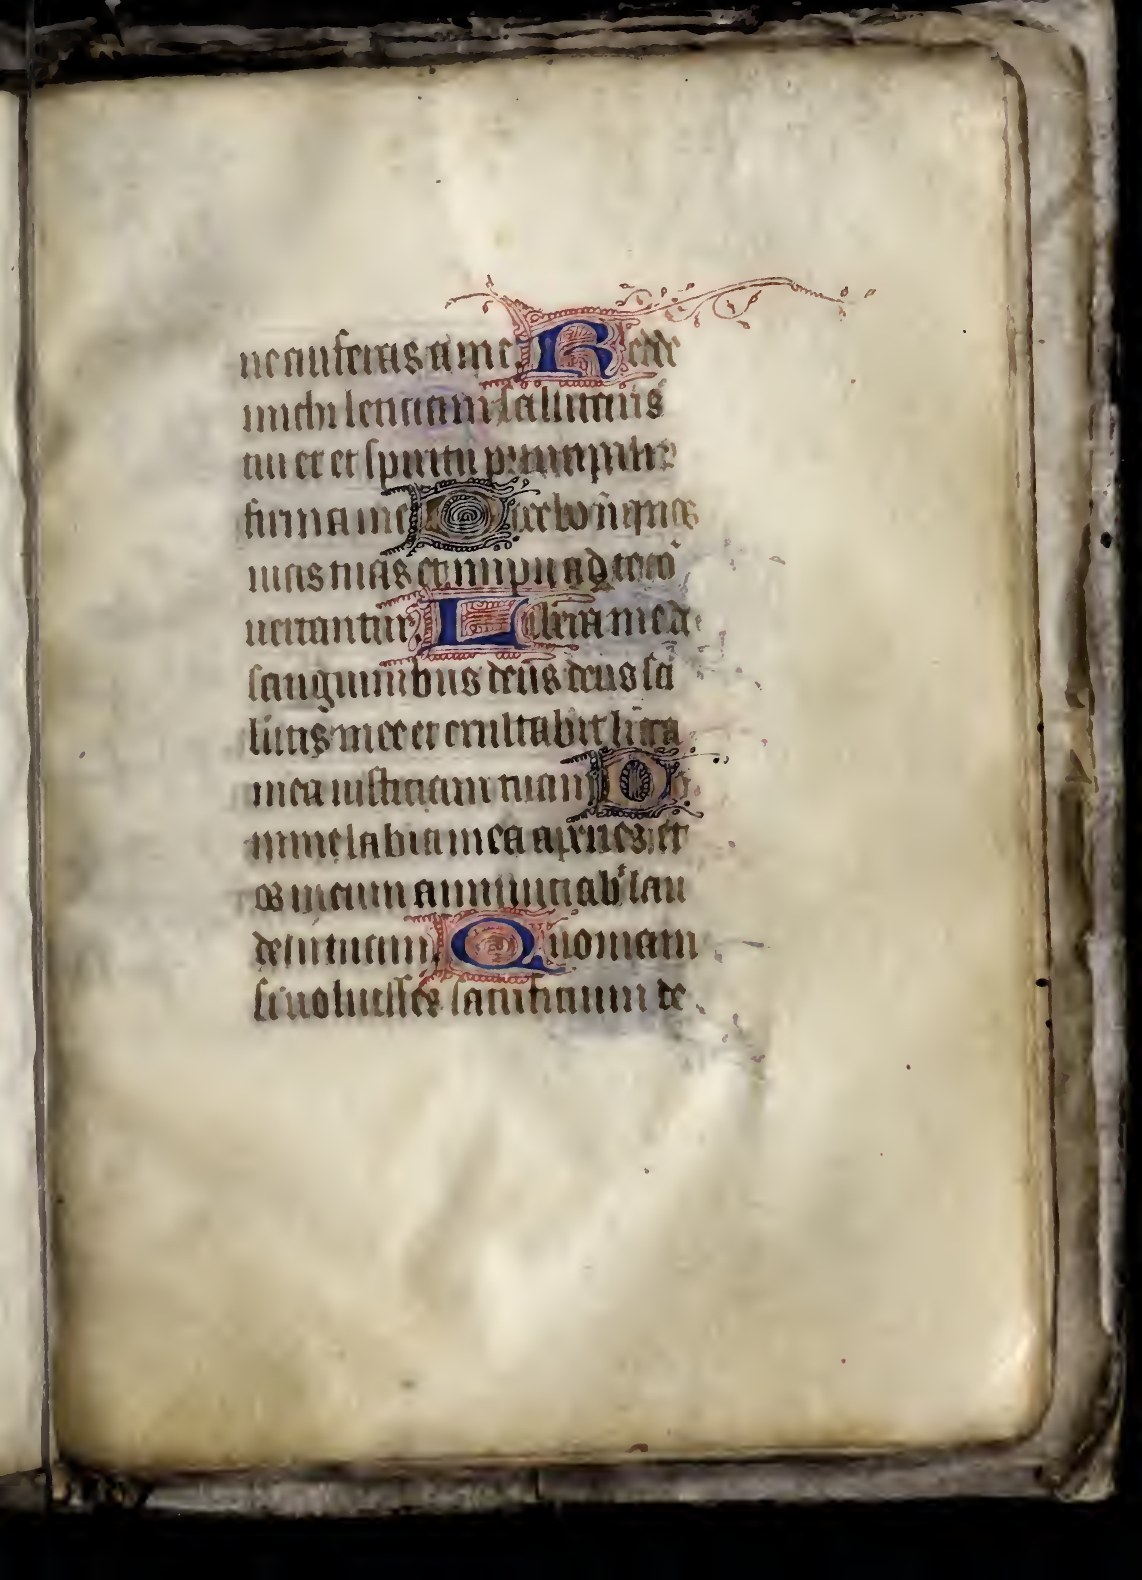 ne auferas a me. Redde
michi leticiam salutaris
tui et et spiritu principali
firma me Docebo iniquos
uias tuas et impii ad te cō
uertantur. Libera me de
sanguinibus deus deus sa
lutis mee et exultabit līgua
mea iusticiam tuam Do
mine labia mea aperies et
os meum annunciabit lau
dem tuam. Quoniam
si uoluisses sacrificium de